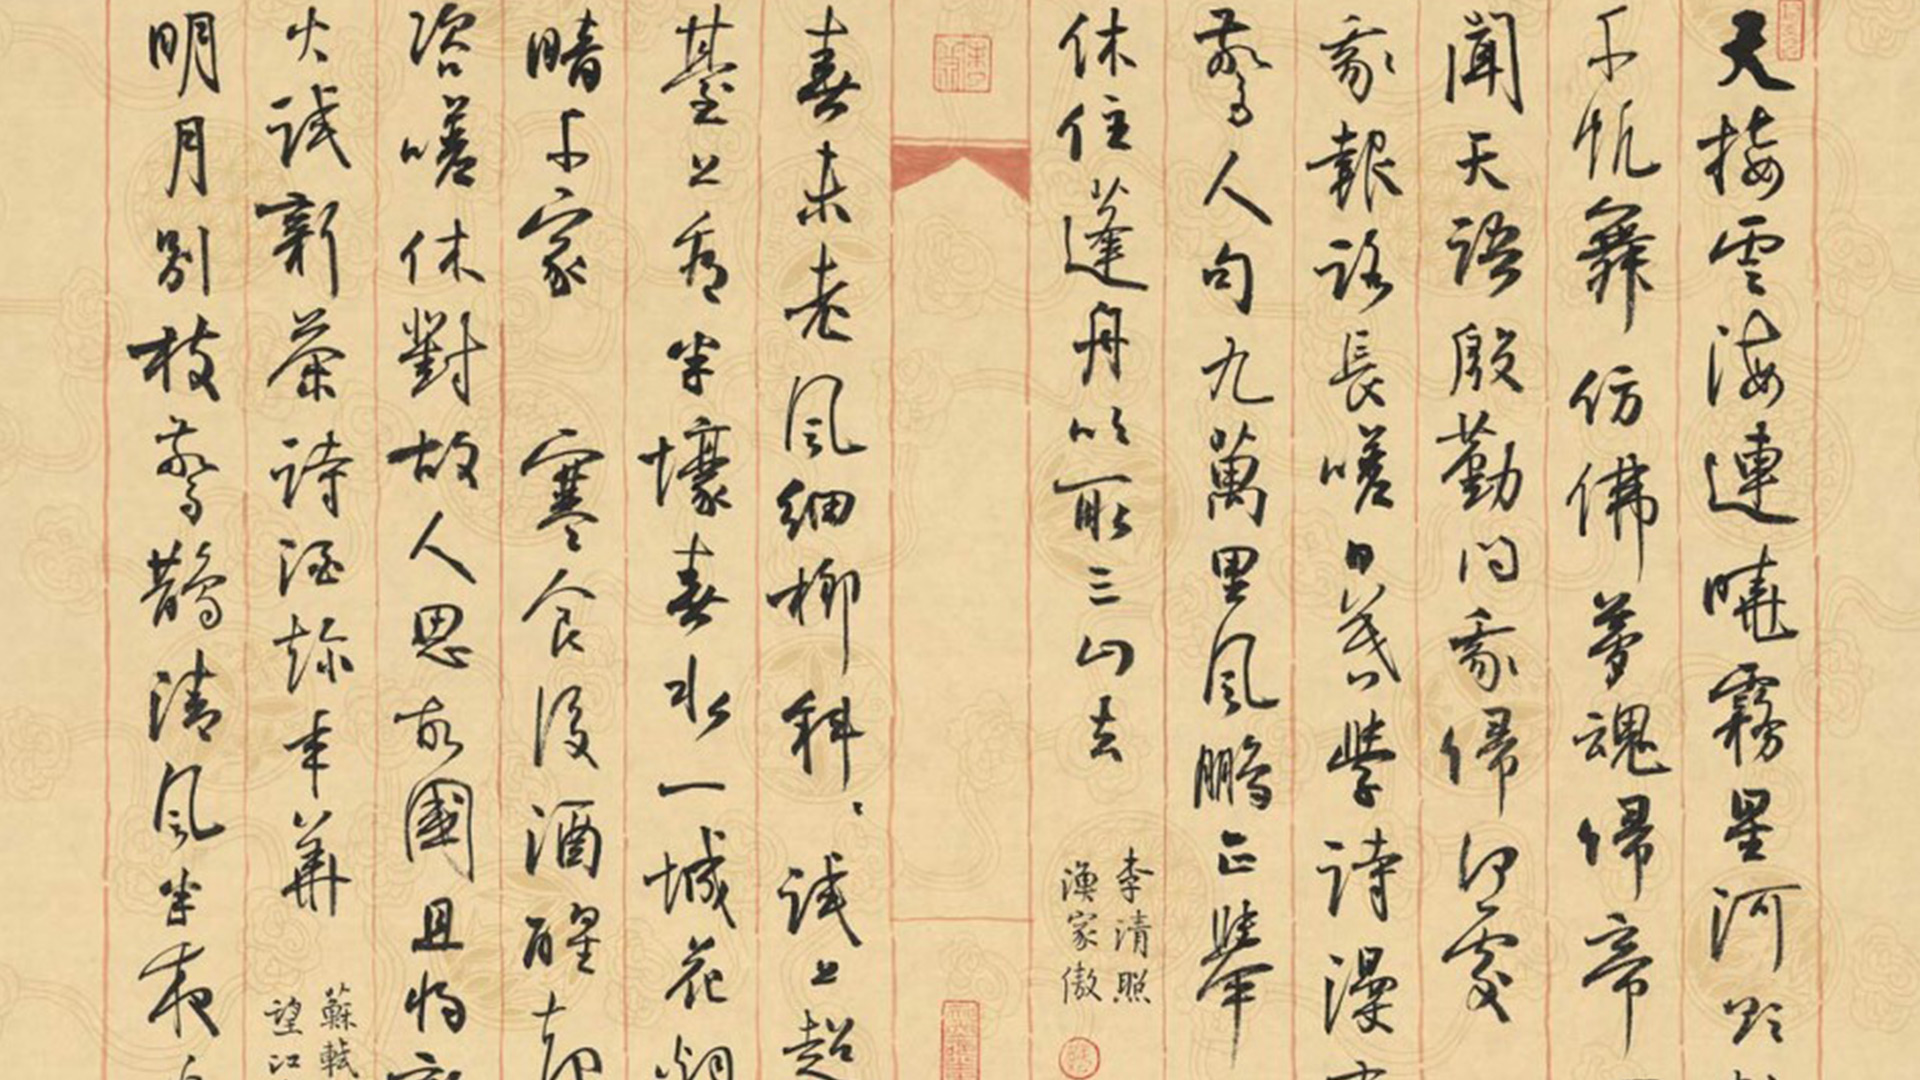 天接雲海連曉霧星河欲
千帆舞仿佛夢魂歸帝
聞天語殷勤問我歸何處
我報路長嗟日暮學詩漫
驚人句九萬里風鵬正舉
休住蓬舟吹取三山去
李清照
漁家傲
春未老風細柳斜〻試上超
臺上看半壕春水一城花煙
暗千家 寒食後酒醒却
咨嗟休對故人思故國且將新
火試新茶詩酒趁年華
蘇軾
望江
明月別枝驚鵲清風半夜